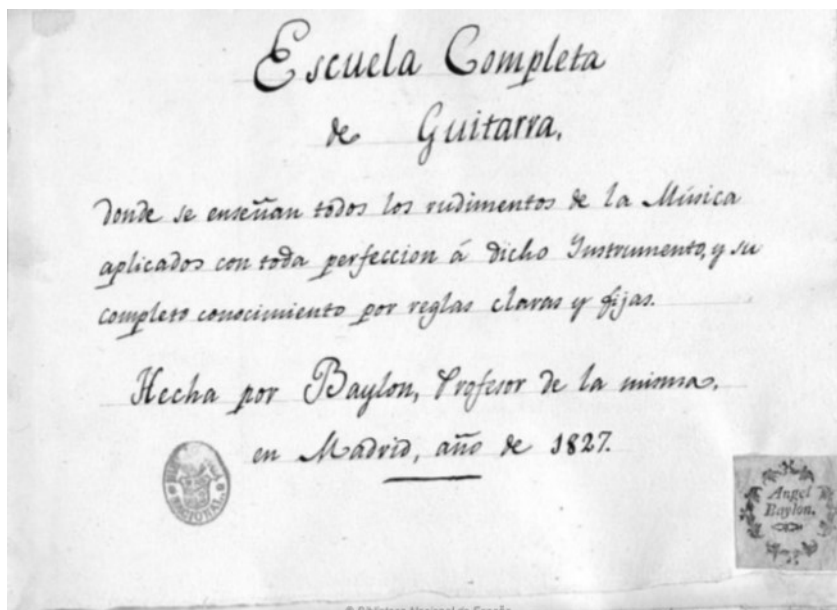 Escuela Completa
de Guitarra,
donde se enseñan todos los rudimentos de la Música
aplicados con toda perfeccion á dicho Instrumento, y su
completo conocimiento por reglas claras y fijas.
Hecha por Baylon, Profesor de la misma,
en Madrid, año de 1827.
Angel
Baylon,
© Biblioteca Nacional de España